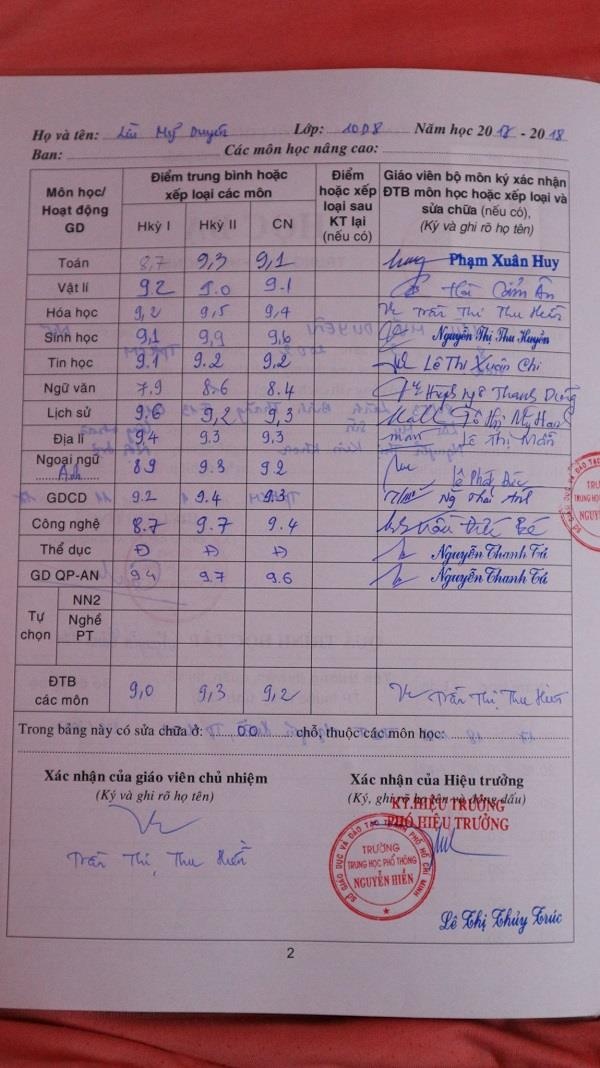 Họ và tên: Lại Mỹ Duyên Lớp: 10D8 Năm học 2017 - 2018
Ban: Các môn học nâng cao:
Môn học/ Hoạt động GD Điểm trung bình hoặc xếp loại các môn Điểm hoặc xếp loại sau KT lại (nếu có) Giáo viên bộ môn ký xác nhận ĐTB môn học hoặc xếp loại và sửa chữa (nếu có), (Ký và ghi rõ họ tên)
Hkỳ I Hkỳ II CN
Toán 8,7 9,3 9,1 Phạm Xuân Huy
Vật lí 9.2 9.0 9.1 Ân
Hóa học 9,2 9,5 9,4 Trần Thị Thu Hiền
Sinh học 9,1 9,9 9,6 Nguyễn Thị Thu Huyền
Tin học 9.1 9.2 9,2 Lê Thị Xuân Chi
Ngữ văn 7.9 8.6 8.4 Thanh Dung
Lịch sử 9,6 9,2 9,3
Địa lí 9,4 9.3 9.3 Lê Thị Mẫn
Ngoại ngữ Anh 8.9 9.3 9.2 Lê Phát Đức
GDCD 9.2 9.4 9.3 Ng Thái Anh
Công nghệ 8.7 9.7 9.4
Thể dục Đ Đ Đ Nguyễn Thanh Tú
GD QP-AN 9.4 9.7 9.6 Nguyễn Thanh Tú
Tự chọn NN2
Nghề PT
ĐTB các môn 9,0 9,3 9,2 Trần Thị Thu Hiền
Trong bảng này có sửa chữa ở: 00 chỗ, thuộc các môn học:
Xác nhận của giáo viên chủ nhiệm Xác nhận của Hiệu trưởng
(Ký và ghi rõ họ tên) (Ký, ghi rõ họ tên và đóng dấu)
KT.HIỆU TRƯỞNG
PHÓ HIỆU TRƯỞNG
Trần Thị Thu Hiền
SỞ GIÁO DỤC VÀ ĐÀO TẠO THÀNH PHỐ HỒ CHÍ MINH
TRƯỜNG
TRUNG HỌC PHỔ THÔNG
NGUYỄN HIỀN
Lê Thị Thủy Trúc
2